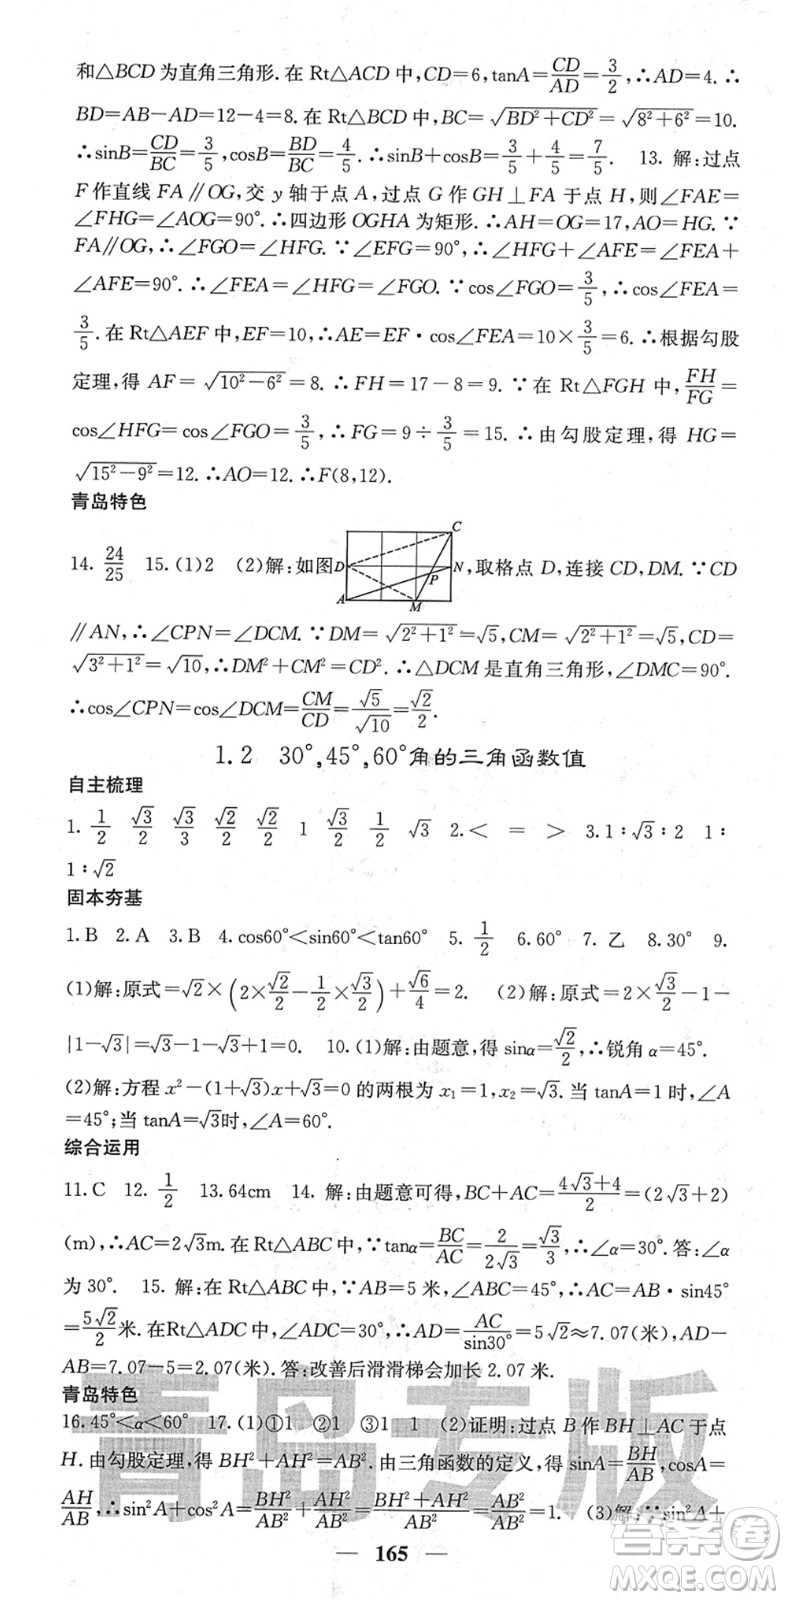 和△BCD为直角三角形.在Rt△ACD中,CD=6,tanA=CD/AD=3/2,∴AD=4.∴
BD=AB-AD=12-4=8.在Rt△BCD中,BC=√(BD²+CD²)=√(8²+6²)=10.
∴sinB=CD/BC=3/5,cosB=BD/BC=4/5.∴sinB+cosB=3/5+4/5=7/5. 13.解:过点
F作直线FA∥OG,交y轴于点A,过点G作GH⊥FA于点H,则∠FAE=
∠FHG=∠AOG=90°.∴四边形OGHA为矩形.∴AH=OG=17,AO=HG.∵
FA∥OG,∴∠FGO=∠HFG.∵∠EFG=90°,∴∠HFG+∠AFE=∠FEA+
∠AFE=90°.∴∠FEA=∠HFG=∠FGO.∵cos∠FGO=3/5,∴cos∠FEA=
3/5.在Rt△AEF中,EF=10,∴AE=EF·cos∠FEA=10×3/5=6.∴根据勾股
定理,得AF=√(10²-6²)=8.∴FH=17-8=9.∵在Rt△FGH中,FH/FG=
cos∠HFG=cos∠FGO=3/5,∴FG=9÷3/5=15.∴由勾股定理,得HG=
√(15²-9²)=12.∴AO=12.∴F(8,12).
青岛特色
14. 24/25 15.(1)2 (2)解:如图 D C N P A M ,取格点D,连接CD,DM.∵CD
∥AN,∴∠CPN=∠DCM.∵DM=√(2²+1²)=√5,CM=√(2²+1²)=√5,CD=
√(3²+1²)=√10,∴DM²+CM²=CD².∴△DCM是直角三角形,∠DMC=90°.
∴cos∠CPN=cos∠DCM=CM/CD=√5/√10=√2/2.
1.2 30°,45°,60°角的三角函数值
自主梳理
1. 1/2 √3/2 √3/3 √2/2 √2/2 1 √3/2 1/2 √3 2.< = > 3.1∶√3∶2 1∶
1∶√2
固本夯基
1.B 2.A 3.B 4.cos60°<sin60°<tan60° 5. 1/2 6.60° 7.乙 8.30° 9.
(1)解:原式=√2×(2×√2/2-1/2×√3/2)+√6/4=2. (2)解:原式=2×√3/2-1-
|1-√3|=√3-1-√3+1=0. 10.(1)解:由题意,得sinα=√2/2,∴锐角α=45°.
(2)解:方程x²-(1+√3)x+√3=0的两根为x₁=1,x₂=√3.当tanA=1时,∠A
=45°;当tanA=√3时,∠A=60°.
综合运用
11.C 12. 1/2 13.64cm 14.解:由题意可得,BC+AC=(4√3+4)/2=(2√3+2)
(m),∴AC=2√3m.在Rt△ABC中,∵tanα=BC/AC=2/(2√3)=√3/3,∴∠α=30°.答:α
为30°. 15.解:在Rt△ABC中,∵AB=5米,∠ABC=45°,∴AC=AB·sin45°
=5√2/2米.在Rt△ADC中,∵∠ADC=30°,∴AD=AC/sin30°=5√2≈7.07(米),AD-
AB=7.07-5=2.07(米).答:改善后滑滑梯会加长2.07米.
青岛特色
16.45°<α<60° 17.(1)①1 ②1 ③1 1 (2)证明:过点B作BH⊥AC于点
H.由勾股定理,得BH²+AH²=AB².由三角函数的定义,得sinA=BH/AB,cosA=
AH/AB,∴sin²A+cos²A=BH²/AB²+AH²/AB²=(BH²+AH²)/AB²=AB²/AB²=1. (3)解:∵sin²A+
青岛专版
— 165 —
答案圈
MXQE.COM